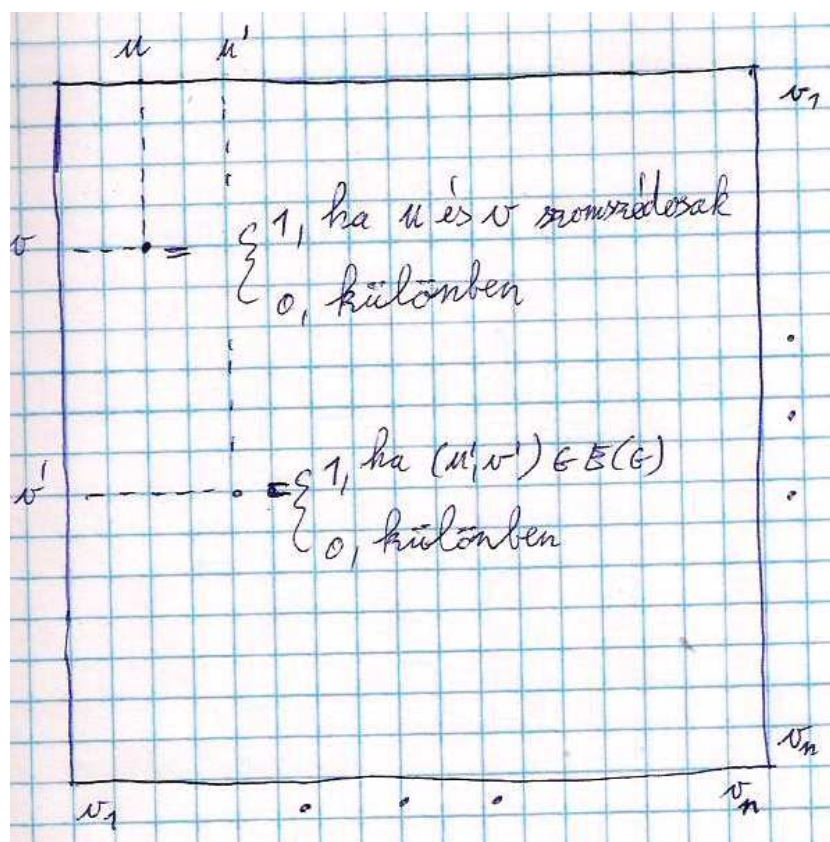 u u'
v₁
v = { 1, ha u és v szomszédosak
0, különben
v' = { 1, ha (u',v') ∈ E(G)
0, különben
vₙ
v₁ . . . vₙ